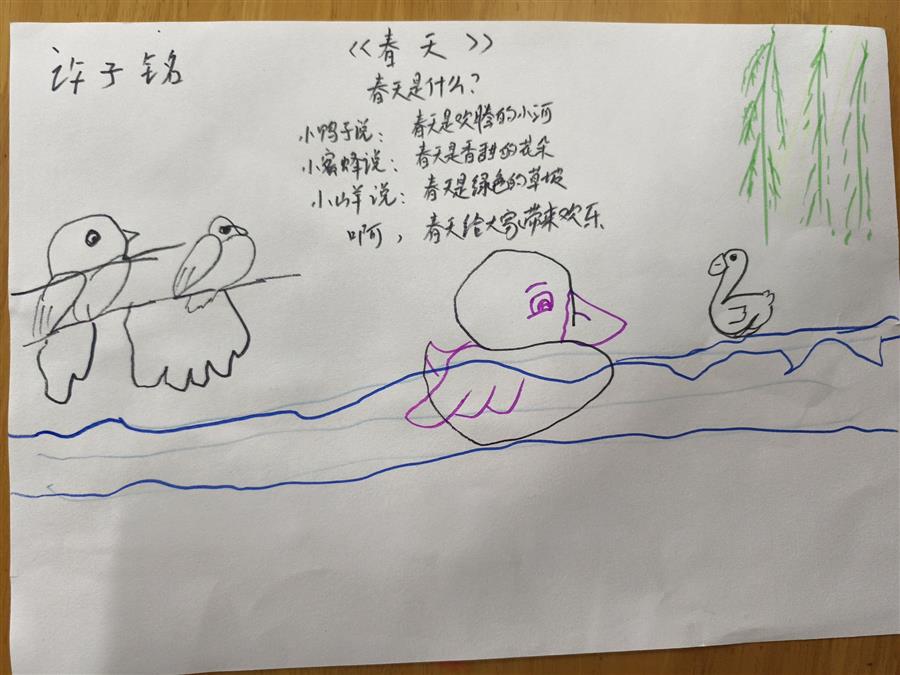 许子铭
《春天》
春天是什么？
小鸭子说：春天是欢腾的小河
小蜜蜂说：春天是香甜的花朵
小山羊说：春天是绿色的草坡
啊，春天给大家带来欢乐